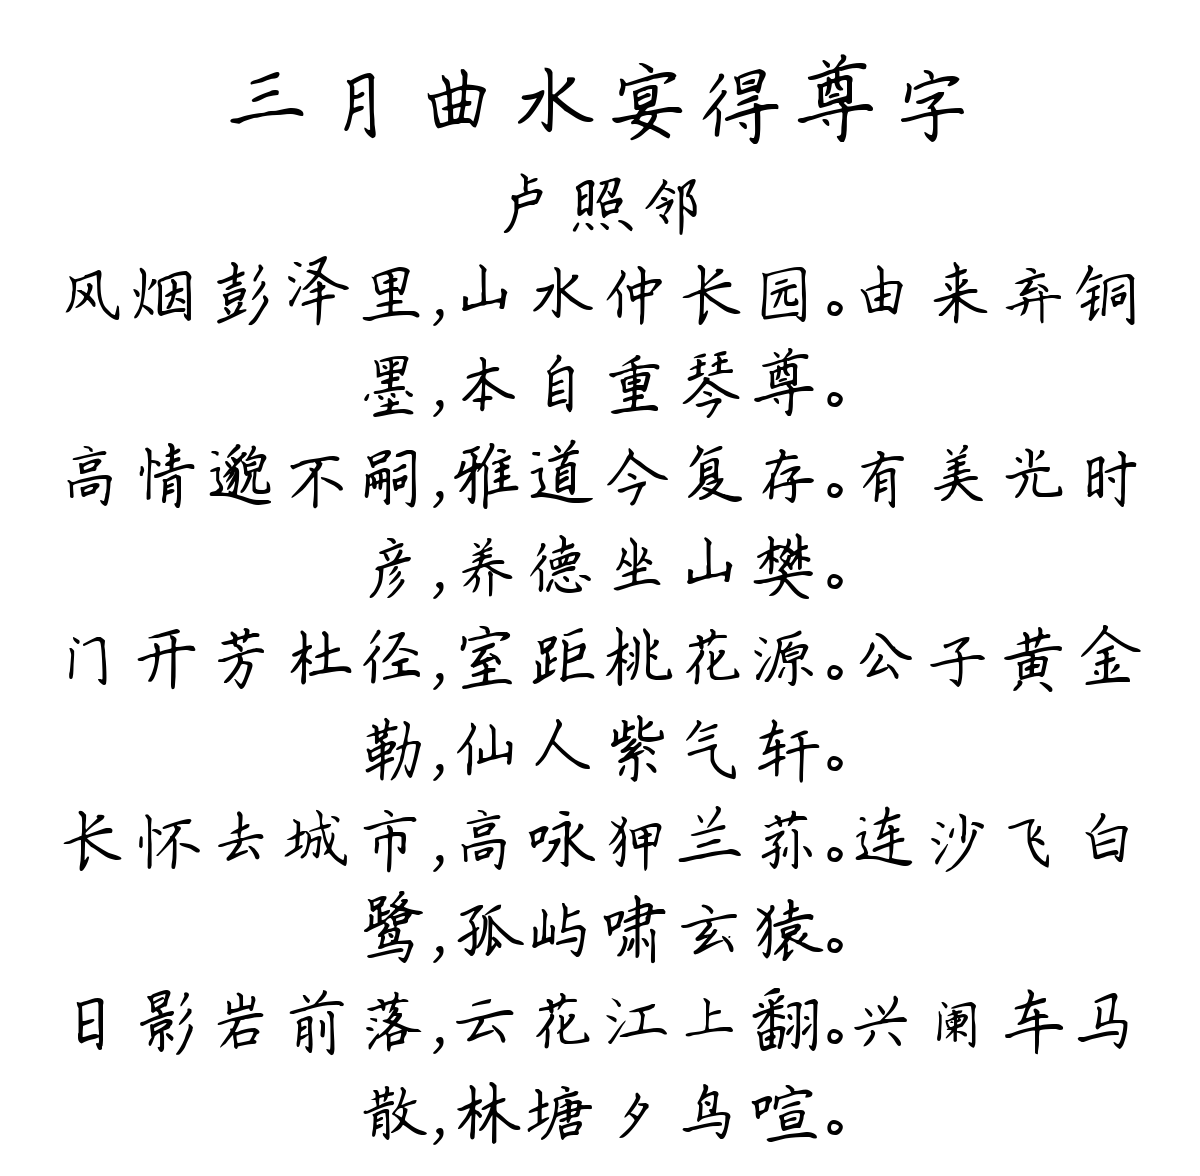 三月曲水宴得尊字
卢照邻
风烟彭泽里,山水仲长园。由来弃铜
墨,本自重琴尊。
高情邈不嗣,雅道今复存。有美光时
彦,养德坐山樊。
门开芳杜径,室距桃花源。公子黄金
勒,仙人紫气轩。
长怀去城市,高咏狎兰荪。连沙飞白
鹭,孤屿啸玄猿。
日影岩前落,云花江上翻。兴阑车马
散,林塘夕鸟喧。